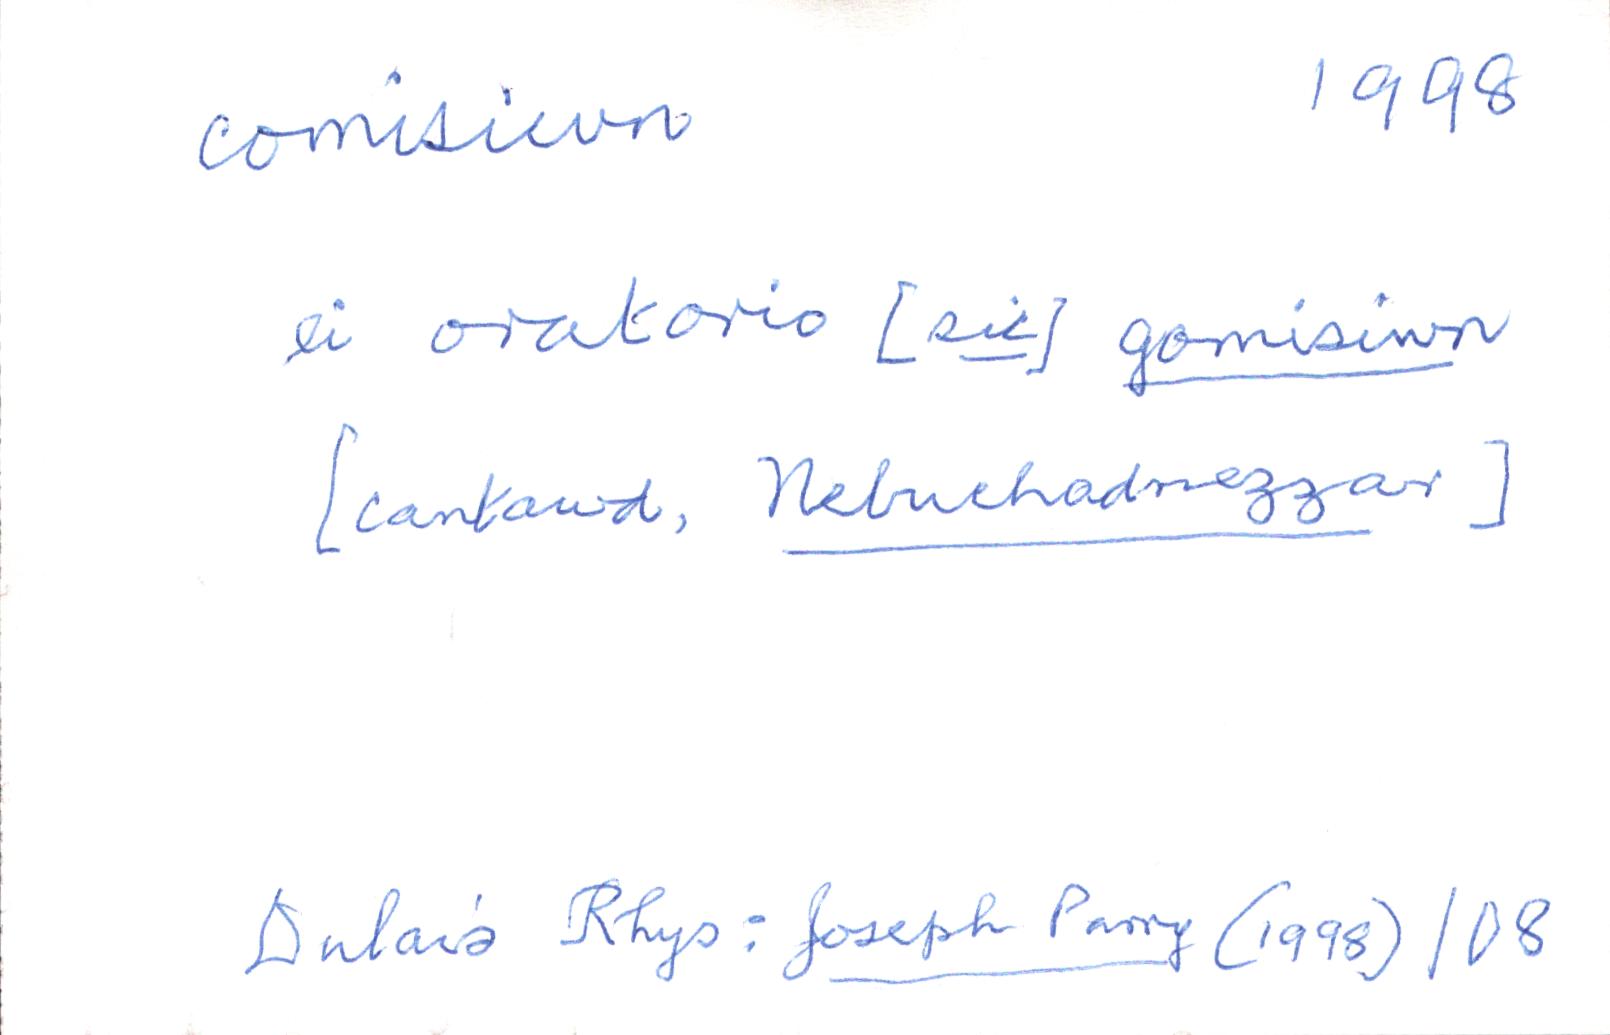 comisiwn 1998
ei oratorio [sic] gomisiwn
[cantawd, Nebuchadnezzar]
Dulais Rhys: Joseph Parry (1998) 108